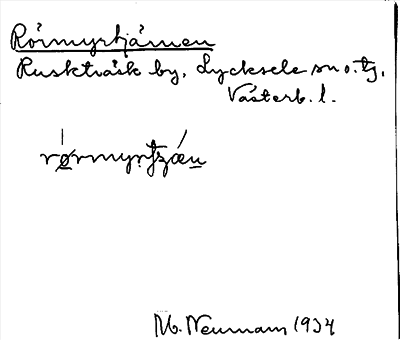 Rörmyrtjärnen
Ruskträsk by, Lycksele sn o. tg.
Västerb. l.
M. Neuman 1934